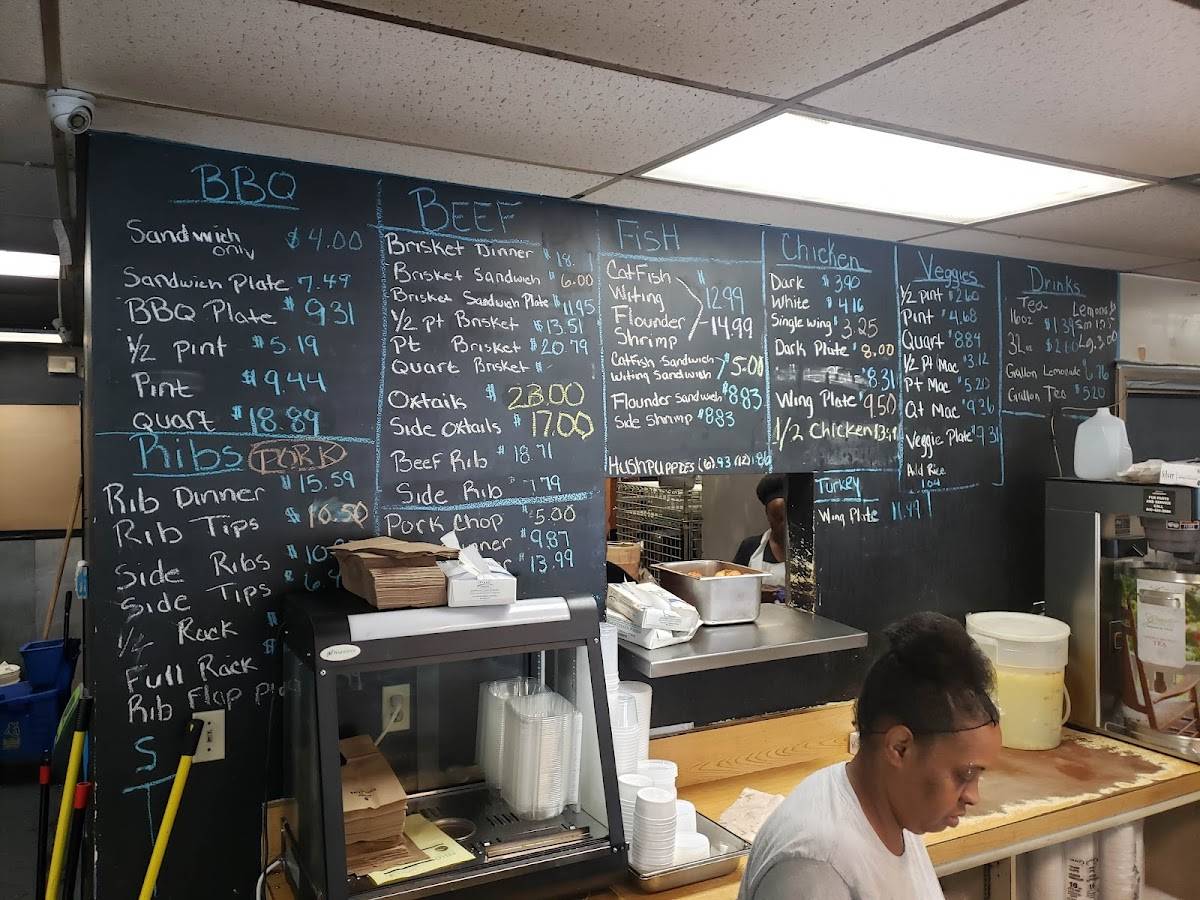 BBQ
Sandwich only $4.00
Sandwich Plate 7.49
BBQ Plate $9.31
1/2 pint $5.19
Pint $9.44
Quart $18.89
Ribs PORK
Rib Dinner $15.59
Rib Tips $10.50
Side Ribs $10
Side Tips $6.4
1/4 Rack $
Full Rack $
Rib Flap
S
BEEF
Brisket Dinner $18.
Brisket Sandwich 6.00
Brisket Sandwich Plate $11.95
1/2 pt Brisket $13.51
Pt Brisket $20.79
Quart Brisket $
Oxtails $23.00
Side Oxtails $17.00
Beef Rib $18.71
Side Rib $7.79
Pork Chop $5.00
nner $9.87
$13.99
Fish
CatFish
Witing $12.99
Flounder 14.99
Shrimp
Catfish Sandwich $5.00
Witing Sandwich
Flounder Sandwich $8.83
Side Shrimp $8.83
Hushpuppies (6) .93 (12) 1.86
Chicken
Dark $3.90
White $4.16
Single wing $3.25
Dark Plate $8.00
$8.31
Wing Plate $9.50
1/2 Chicken
Turkey
Wing Plate 11.99
Veggies
1/2 pint $2.60
Pint $4.68
Quart $8.84
1/2 Pt Mac $3.12
Pt Mac
Qt Mac $9.36
Veggie Plate $9.31
Add Rice
1.04
Drinks
Tea
16oz
3L
Gallon Lemonade
Gallon Tea $5.20
TEA